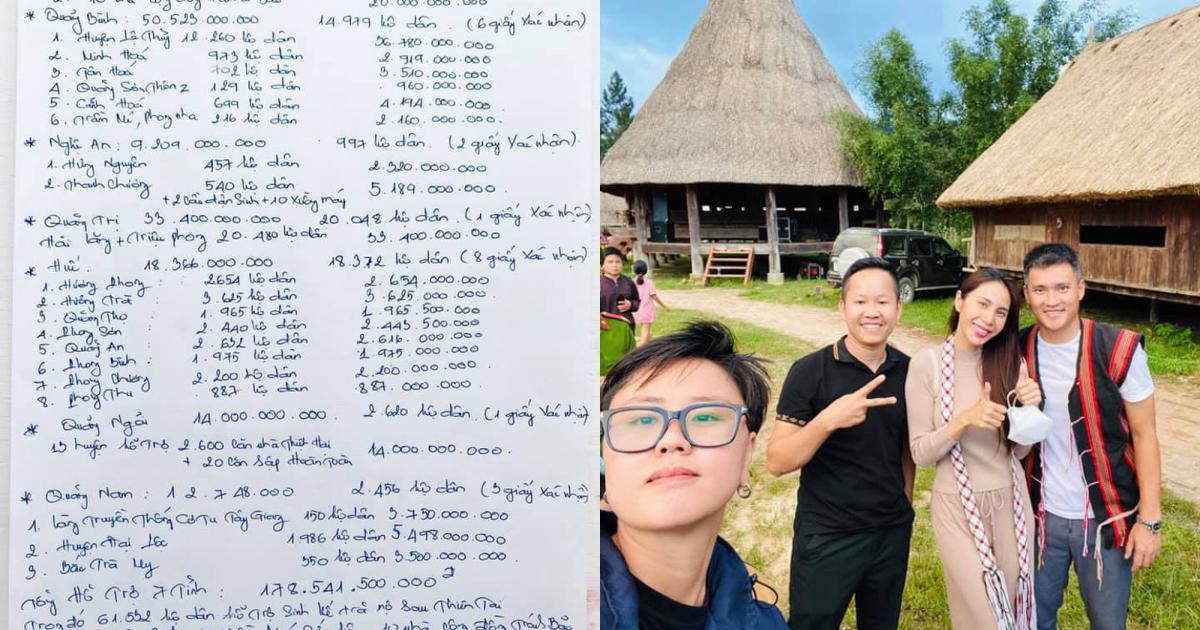 20.000.000.000
* Quảng Bình : 50.523.000.000 14.979 hộ dân. (6 giấy Xác nhận)
1. Huyện Lệ Thủy 12.260 hộ dân 36.780.000.000
2. Minh Hoá 973 hộ dân 2.919.000.000
3. Tân Hoá 702 hộ dân 3.510.000.000
4. Quảng Sơn, Thôn 2 129 hộ dân 960.000.000
5. Cảnh Hoá 699 hộ dân 4.194.000.000
6. Trầm Mé, Phong nha 216 hộ dân 2.160.000.000
* Nghệ An : 9.209.000.000 997 hộ dân (2 giấy Xác nhận).
1. Hưng Nguyên 457 hộ dân 2.320.000.000
2. Thanh Chương 540 hộ dân 5.189.000.000
+ 2 Cầu dân Sinh + 10 Xuồng máy
* Quảng Trị 33.400.000.000 20.048 hộ dân. (1 giấy Xác nhận)
Hải lăng + Triệu phong 20.480 hộ dân 33.400.000.000
* Huế. 18.366.000.000 18.372 hộ dân (8 giấy Xác nhận)
1. Hương Phong : 2654 hộ dân 2.654.000.000
2. Hương Trà : 3.625 hộ dân 3.625.000.000
3. Quảng Thọ : 1.965 hộ dân 1.965.500.000
4. Phong Sơn : 2.440 hộ dân 2.443.500.000
5. Quảng An : 2.632 hộ dân 2.616.000.000
6. Phong Bình : 1.975 hộ dân 1.975.000.000
7. Phong Chương : 2.200 hộ dân 2.200.000.000
8. Phong Thu : 887 hộ dân 887.000.000
* Quảng Ngãi 14.000.000.000 2.620 hộ dân (1 giấy Xác nhận)
13 huyện hỗ Trợ 2.600 Căn nhà Thiệt Hại 14.000.000.000.
+ 20 Căn Sập Hoàn Toàn
* Quảng Nam : 12.748.000 2.456 hộ dân (3 giấy Xác nhận)
1. làng Truyền Thống Cơ Tu Tây Giang 150 hộ dân 3.750.000.000
2. Huyện Đại Lộc 1986 hộ dân 5.498.000.000
3. Bắc Trà My 350 hộ dân 3.500.000.000
Tổng Hỗ Trợ 7 Tỉnh : 178.541.500.000
Trong đó 61.532 hộ dân hỗ Trợ Sinh kế trả nợ Sau Thiên Tai